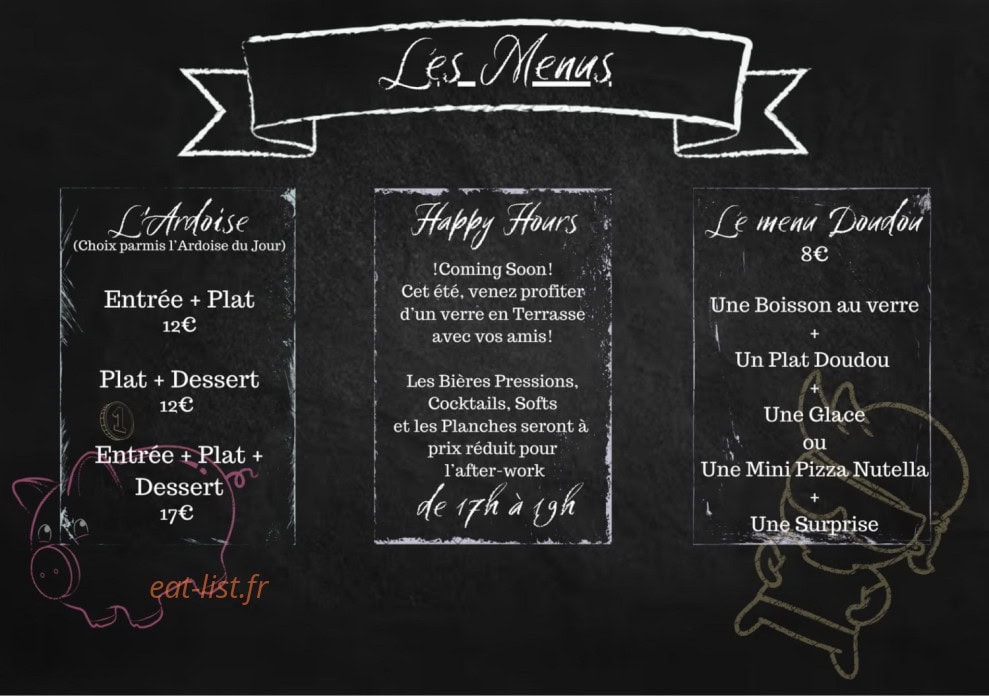 Les Menus
L'Ardoise
(Choix parmis l'Ardoise du Jour)
Entrée + Plat
12€
Plat + Dessert
12€
1
Entrée + Plat +
Dessert
17€
eat-list.fr
Happy Hours
!Coming Soon!
Cet été, venez profiter
d'un verre en Terrasse
avec vos amis!
Les Bières Pressions,
Cocktails, Softs
et les Planches seront à
prix réduit pour
l'after-work
de 17h à 19h
Le menu Doudou
8€
Une Boisson au verre
+
Un Plat Doudou
+
Une Glace
ou
Une Mini Pizza Nutella
+
Une Surprise